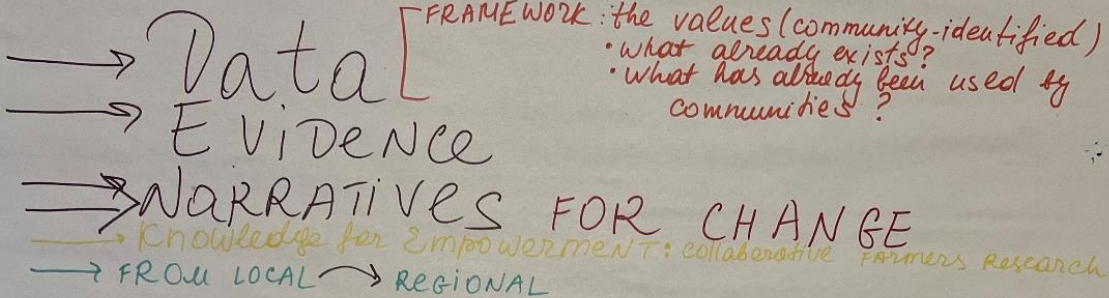 Data
FRAMEWORK: the values (community-identified)
• what already exists?
• what has already been used by
communities?
EViDeNce
NaRRATiVes FOR CHANGE
Knowledge for EmpowermeNT: collaborative FArmers Research
FROM LOCAL → REGIONAL